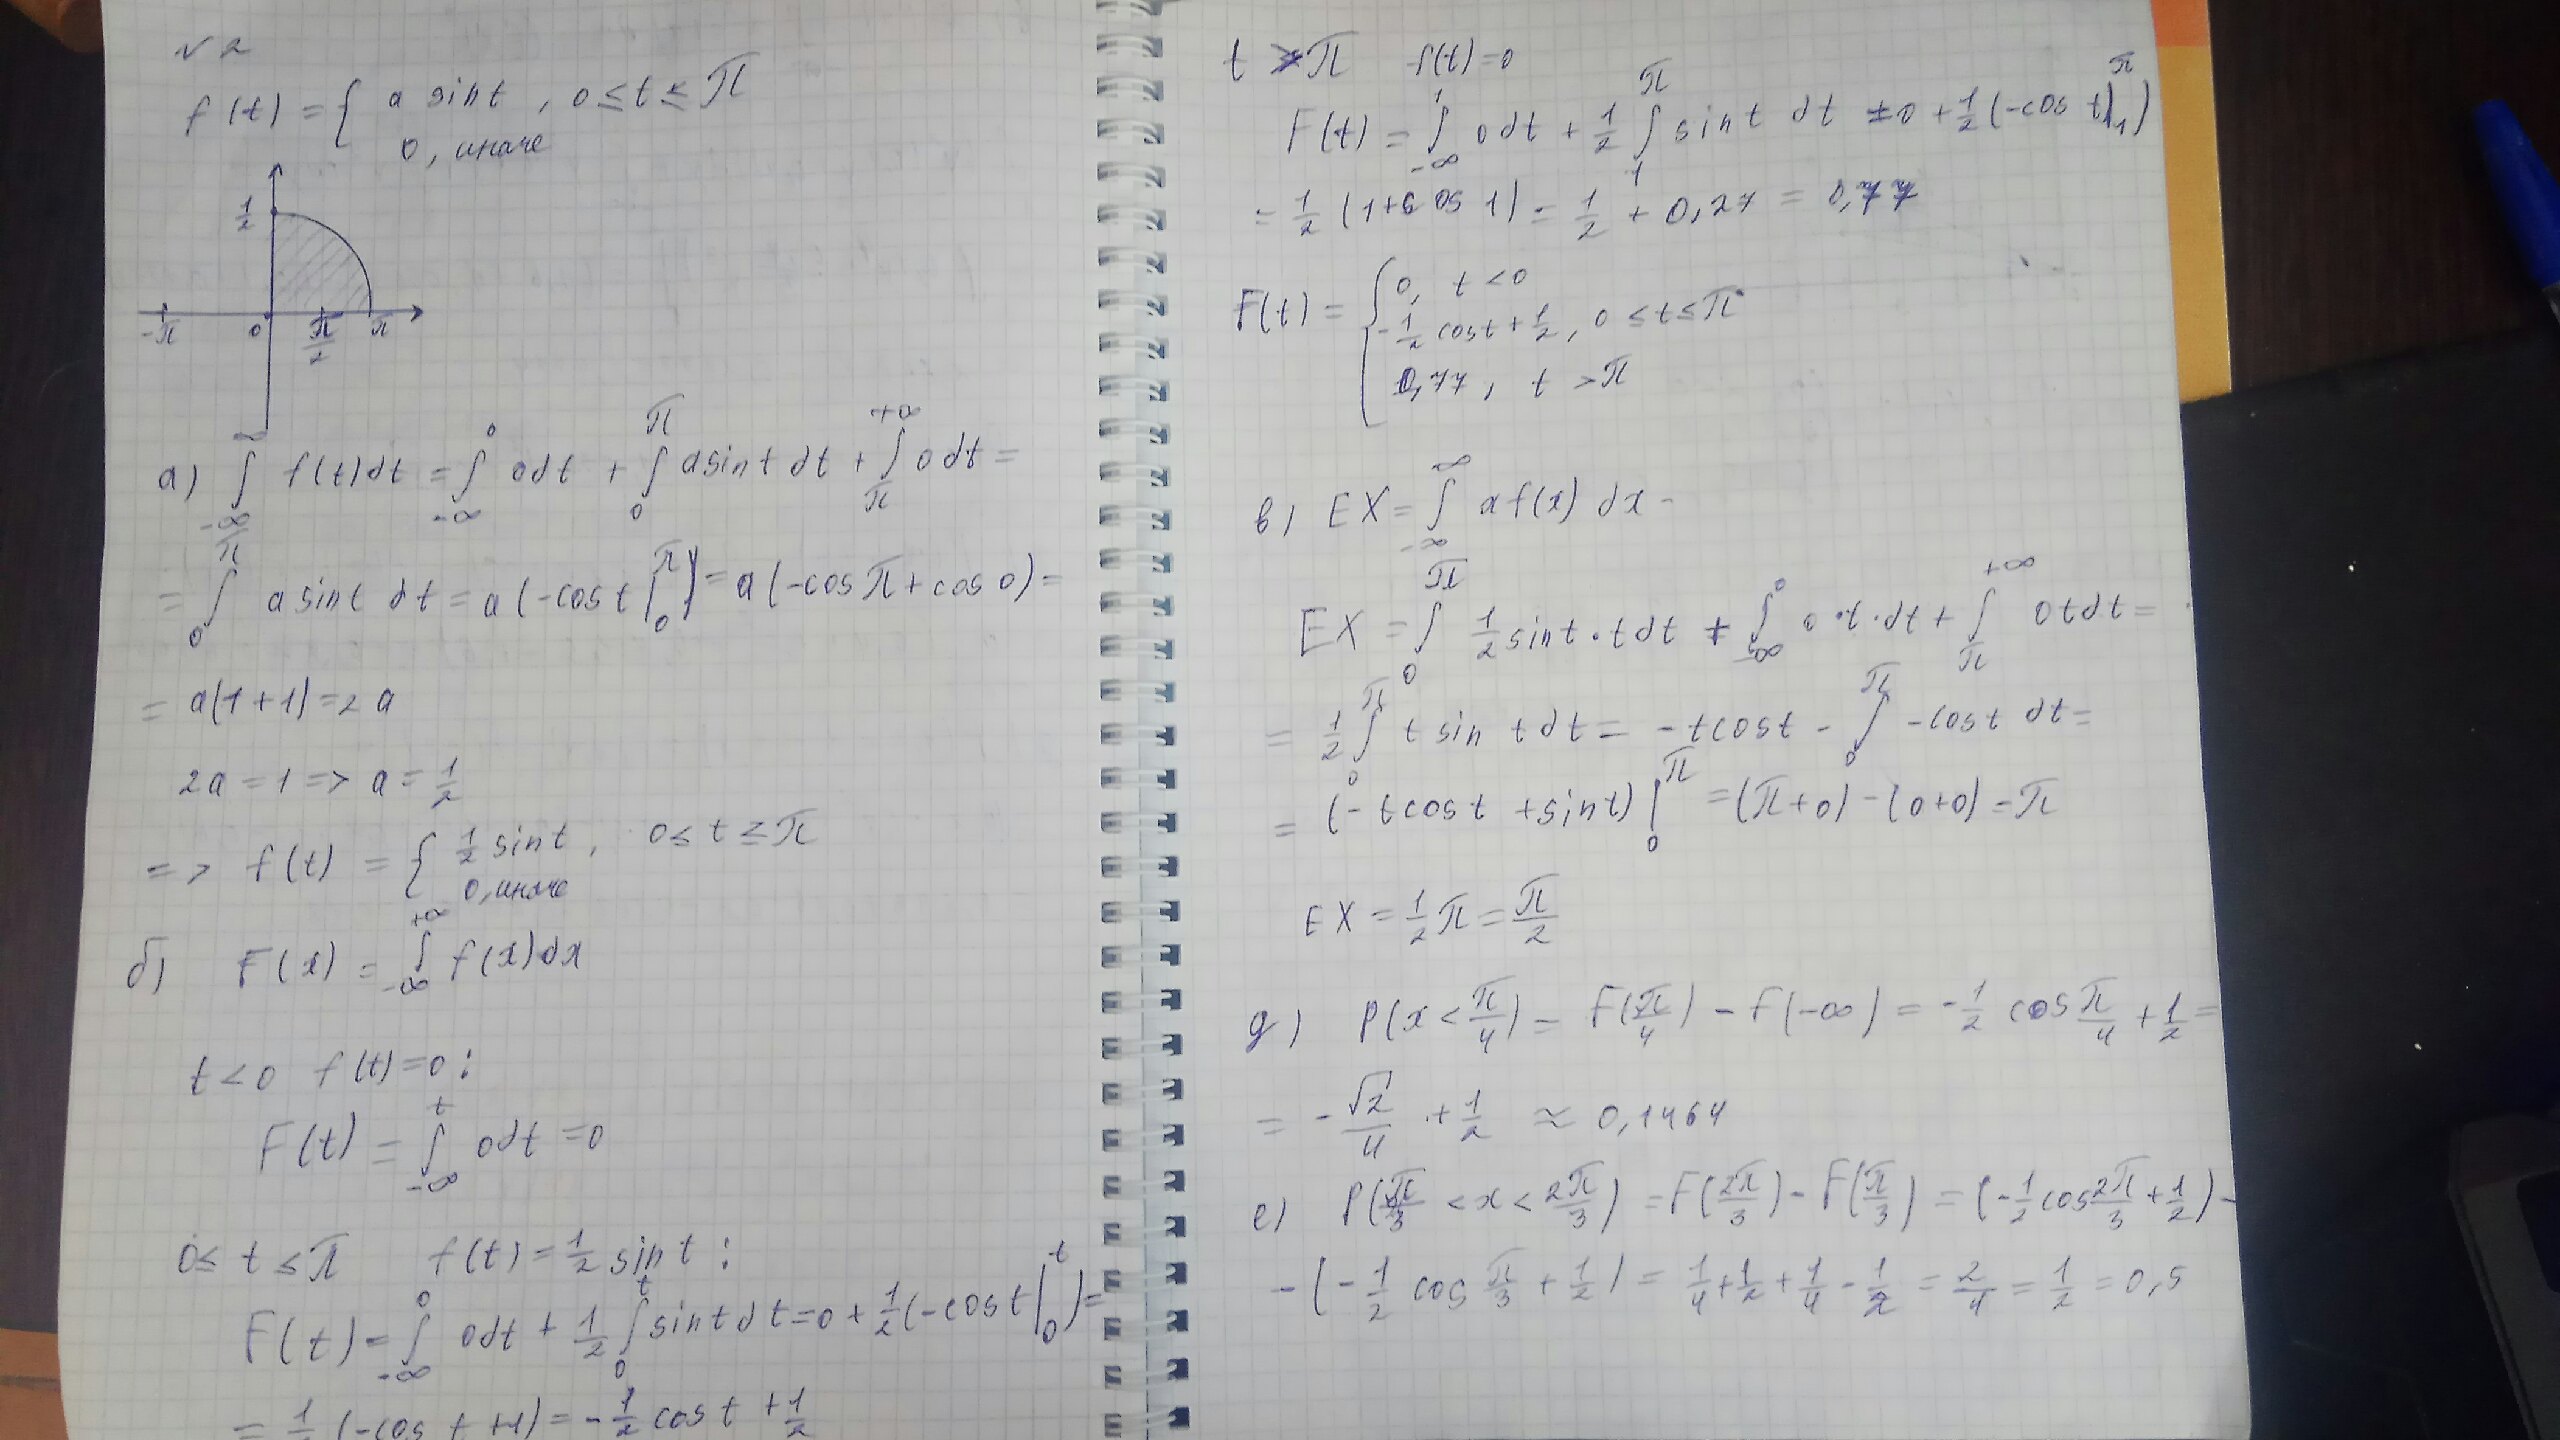 √ 2
f(t) = { a sin t , 0 ≤ t ≤ π
0, иначе
1/2
-π 0 π/2 π
а) ∫_{-∞}^{∞} f(t)dt = ∫_{-∞}^{0} 0dt + ∫_{0}^{π} a sin t dt + ∫_{π}^{+∞} 0dt =
= ∫_{0}^{π} a sin t dt = a(-cos t |_{0}^{π}) = a(-cos π + cos 0) =
= a(1+1) = 2a
2a = 1 => a = 1/2
=> f(t) = { 1/2 sin t , 0 ≤ t ≥ π
0, иначе
б) F(x) = ∫_{-∞}^{+∞} f(x)dx
t < 0 f(t) = 0 :
F(t) = ∫_{-∞}^{t} 0dt = 0
0 ≤ t ≤ π f(t) = 1/2 sin t :
F(t) = ∫_{-∞}^{0} 0dt + 1/2 ∫_{0}^{t} sin t dt = 0 + 1/2 (-cos t |_{0}^{t}) =
= 1/2 (-cos t + 1) = -1/2 cos t + 1/2
t > π f(t) = 0
F(t) = ∫_{-∞}^{1} 0dt + 1/2 ∫_{1}^{π} sin t dt = 0 + 1/2 (-cos t |_{1}^{π})
= 1/2 (1 + cos 1) = 1/2 + 0,27 = 0,77
F(t) = { 0, t < 0
-1/2 cos t + 1/2 , 0 ≤ t ≤ π
0,77 , t > π
в) EX = ∫_{-∞}^{∞} a f(x) dx -
EX = ∫_{0}^{π} 1/2 sin t · t dt + ∫_{-∞}^{0} 0 · t · dt + ∫_{π}^{+∞} 0 t dt =
= 1/2 ∫_{0}^{π} t sin t dt = - t cos t - ∫_{0}^{π} - cos t dt =
= (- t cos t + sin t) |_{0}^{π} = (π + 0) - (0 + 0) = π
EX = 1/2 π = π/2
g) P(x < π/4) = F(π/4) - F(-∞) = - 1/2 cos π/4 + 1/2 =
= - √2/4 + 1/2 ≈ 0,1464
е) P(π/3 < x < 2π/3) = F(2π/3) - F(π/3) = (- 1/2 cos 2π/3 + 1/2) -
- (- 1/2 cos π/3 + 1/2) = 1/4 + 1/2 + 1/4 - 1/2 = 2/4 = 1/2 = 0,5